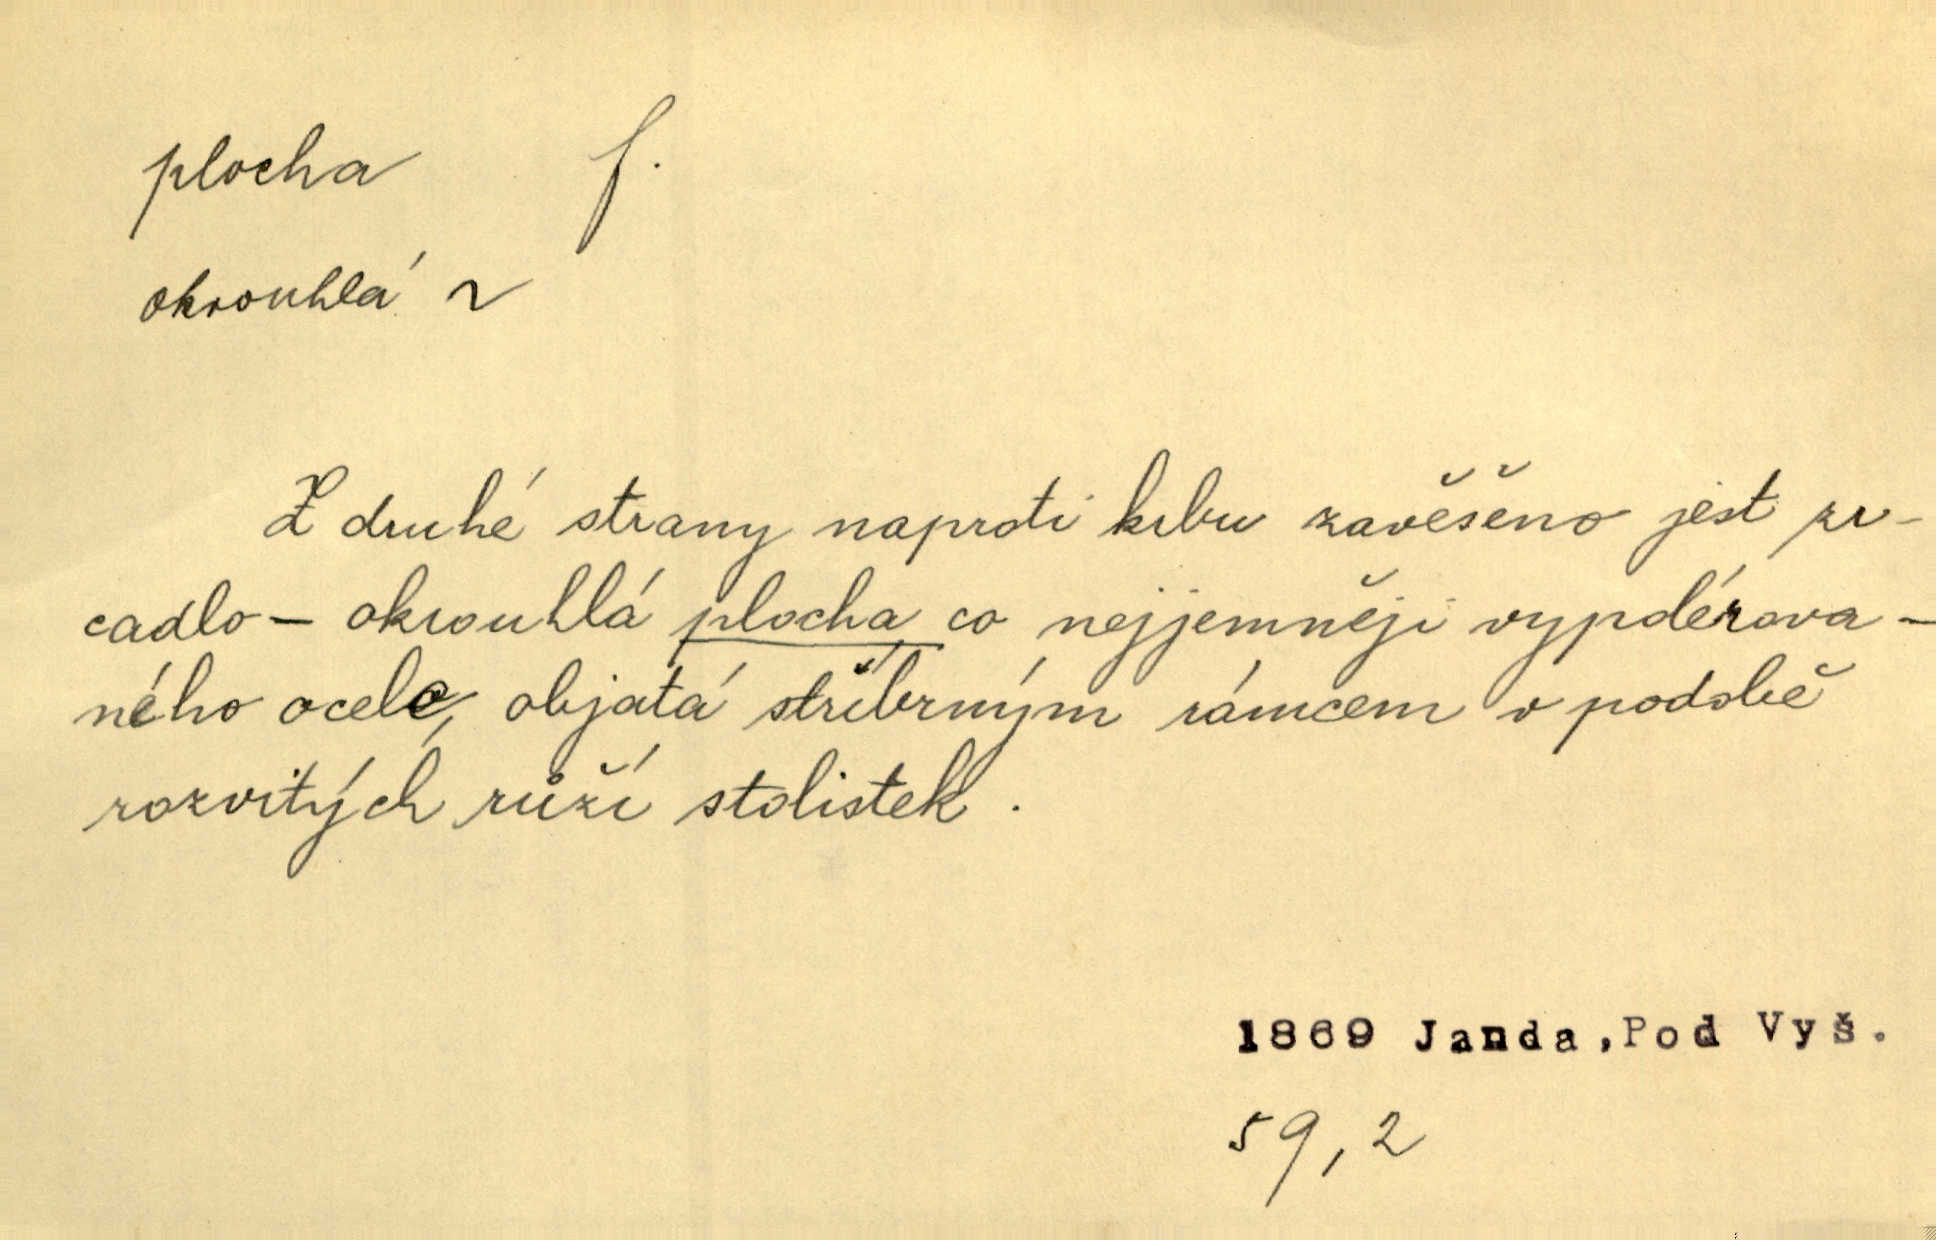 plocha f.
okrouhlá ~
Z druhé strany naproti krbu zavěšeno jest zr-
cadlo - okrouhlá plocha co nejjemněji vypdérova-
ného ocele, objatá stříbrným rámcem v podobě
rozvitých růží stolistek.
1869 Janda, Pod Vyš.
59, 2